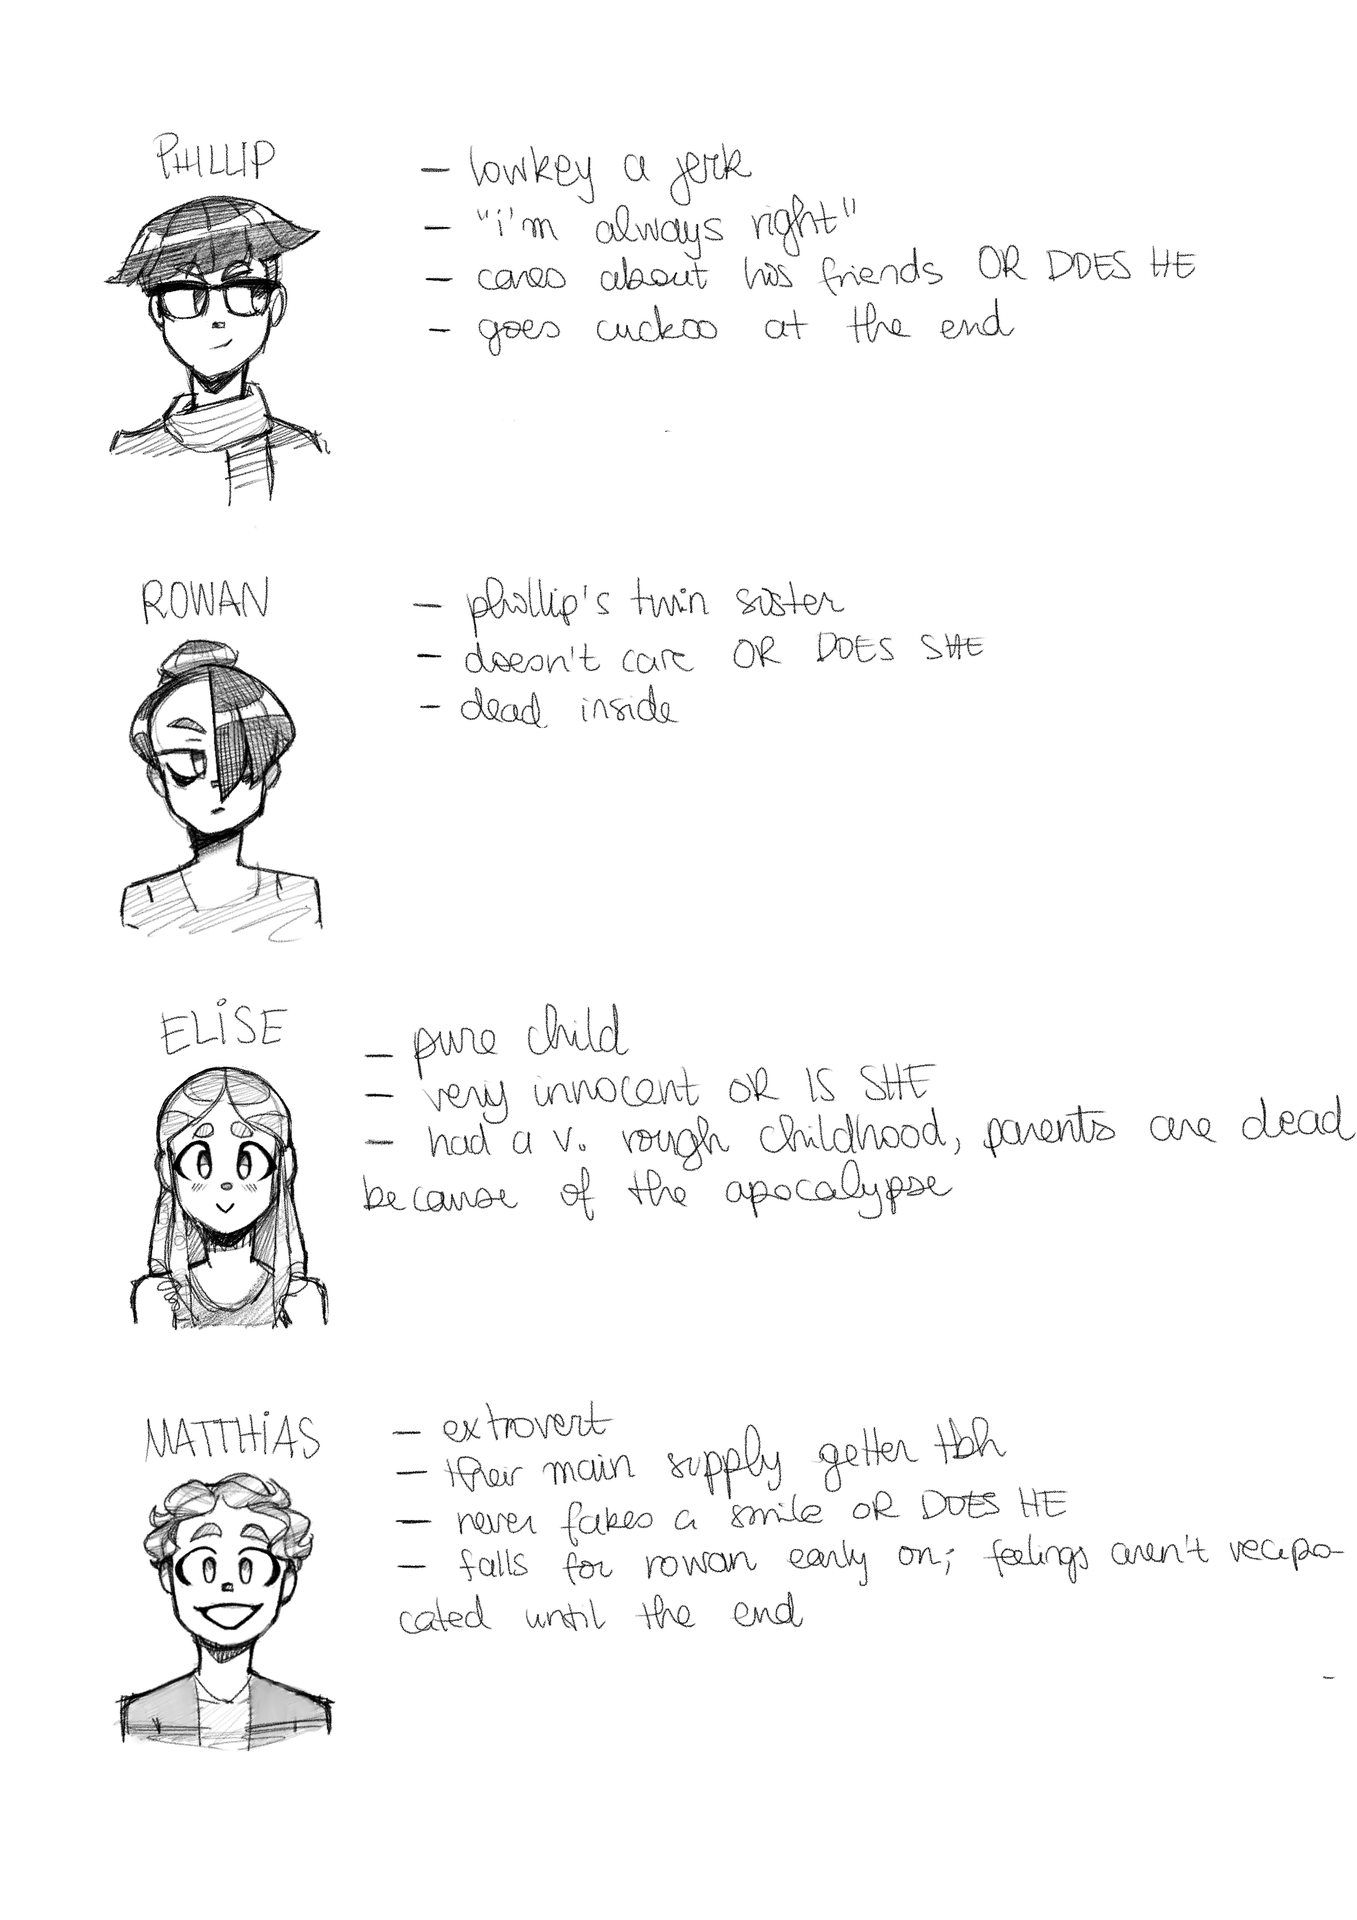 PHILLIP
- lowkey a jerk
- "i'm always right"
- cares about his friends OR DOES HE
- goes cuckoo at the end
ROWAN
- phillip's twin sister
- doesn't care OR DOES SHE
- dead inside
ELiSE
- pure child
- very innocent OR IS SHE
- had a v. rough childhood, parents are dead
because of the apocalypse
MATTHiAS
- extrovert
- their main supply getter tbh
- never fakes a smile OR DOES HE
- falls for rowan early on; feelings aren't recipro-
cated until the end